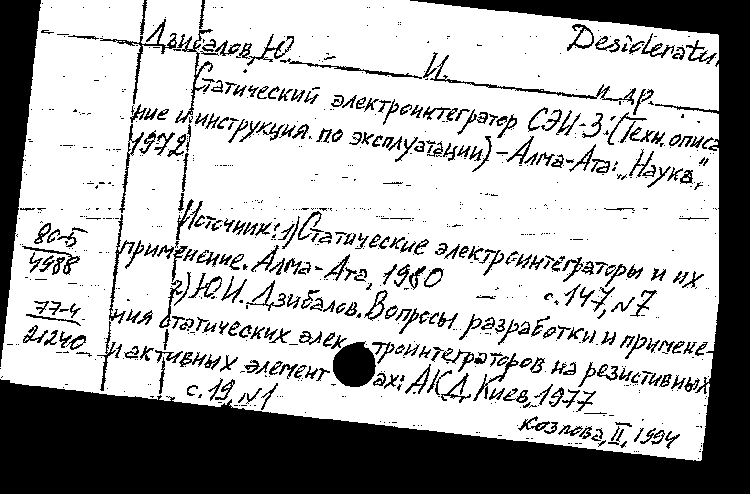 Desideratu
Дзибалов, Ю. И. и др.
Статический электроинтегратор СЭИ-3: (Техн. описа
ние и инструкция по эксплуатации) - Алма-Ата: „Наука",
1972
Источник: 1) Статические электроинтеграторы и их
80-5
4988
применение. Алма-Ата, 1980
с. 147, N7
2) Ю.И. Дзибалов. Вопросы разработки и примене-
77-4
21240
ния статических элек троинтеграторов на резистивных
и активных элемент ах: АКД. Киев, 1977
с. 19, N1
Козлова, II, 1994